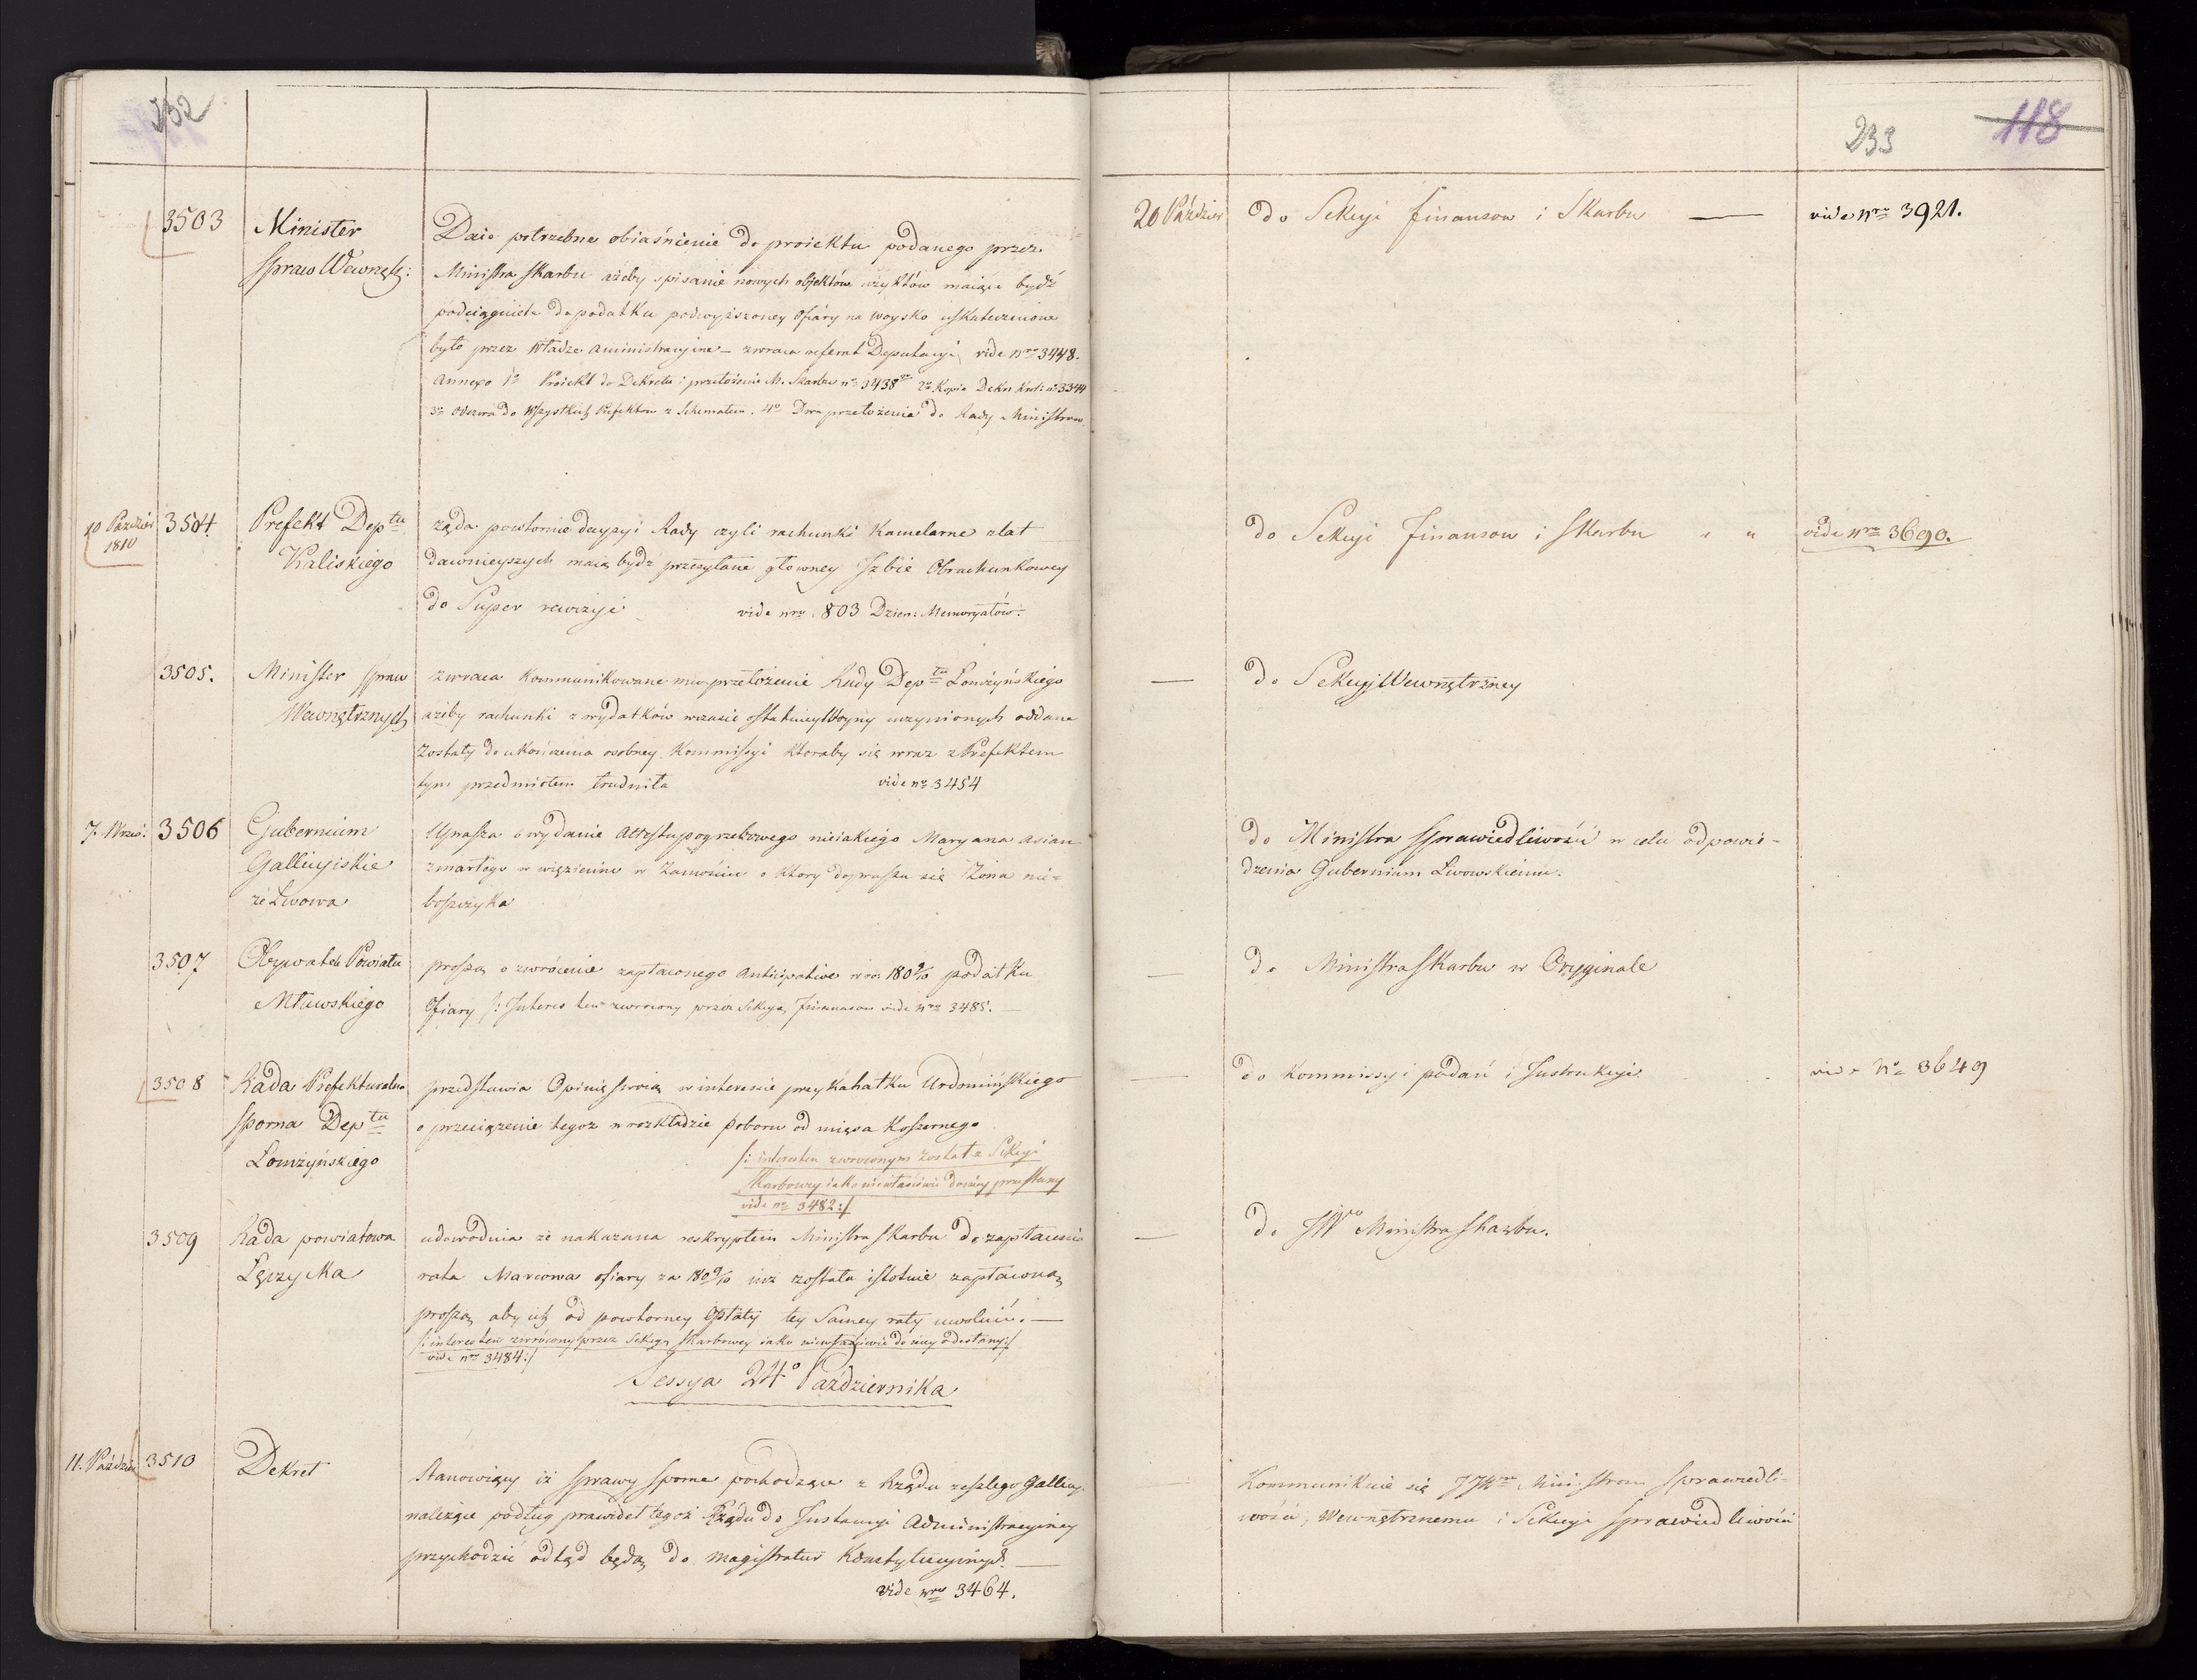 232
3503
Minister
Spraw Wewnętz:
Daie potrzebne obiaśnienie do proiektu podanego przez
Ministra Skarbu ażeby spisanie nowych obiektów maiące bydź
podciągnięte do podatku podwyższoney Ofiary na woysko uskutecznione
było przez Władze Aministracyine – zwraca referat Deputacyi vide Nro 3448.
Annexo 1o Proiekt do Dekretu i przełożenie M. Skarbu no 3438 2o Kopia Dekr: Król: no 3344
3o Odezwa do Wszystkich Prefektow z Schematem. 4o Dwa przełożenia do Rady Ministrow
10 Paździer
1810
3504.
Prefekt Deptu
Kaliskiego
żąda powtornie decyzyi Rady czyli rachunki Kamelarne z lat
dawnieyszych maią bydź przesyłane główney Izbie Obrachunkowey
do Super rewizyi vide nro 803 Dzien: Memoryałów.
3505.
Minister Spraw
Wewnętrznych
zwraca Kommunikowane mu przełożenie Rady Deptu Łomżyńskiego
ażeby rachunki z wydatków wczasie ostatniey Woyny uczynionych oddane
zostały do ukończenia osobney Kommissyi któraby się wraz z Prefektem
tym przedmiotem trudniła vide no 3454
7. Wrześ:
3506
Gubernium
Gallicyiskie
ze Lwowa
Uprasza o wydanie Attestu pogrzebowego nieiakiego Maryana Asian
zmarłego w więzieniu w Zamościu o który doprasza się Żona nie=
boszczyka
3507
Obywatele Powiatu
Mławskiego
proszą o zwrócenie zapłaconego Anticipative w r. 1809/10 podatku
Ofiary /: Interes ten zwrócony przez Sekcyą Finansow vide Nro 3485. –
3508
Rada Prefekturalna
Sporna Deptu
Łomżyńskiego
przedstawia Opinię swoią w interesie przykahałku Urdomińskiego
o przeciążenie tegoż w rozkładzie poboru od mięsa Koszernego
/: interes ten zwroconym został z Sekcyi
Skarbowey iako niewłaściwie do niey przesłany
vide no 3482:/
3509
Rada powiatowa
Łęczycka
udowodnia że nakazana reskryptem Ministra Skarbu do zapłacenia
rata Marcowa ofiary za 1809/10 iuż została istotnie zapłaconą,
proszą aby ich od powtorney Opłaty tey Samey raty uwolnić. –
/: interes ten zwrócony przez Sekcyą Skarbowey iako niewłaściwie do niey odesłany:/
vide nro 3484:/
Sessya 24o Października
11. Paździer
3510
Dekret
Stanowiący iż Sprawy Sporne pochodzące z Rządu zeszłego Gallicy:
należące podług prawideł tegoż Rządu do Instancyi Administracyiney
przychodzić odtąd będą do Magistratur Konstytucyinych. –
vide nro 3464.
233
118
20 Paździer
do Sekcyi Finansow i Skarbu –
vide Nro 3921.
do Sekcyi Finansow i Skarbu " "
vide Nro 3690.
– do Sekcyi Wewnętrzney
do Ministra Sprawiedliwości w celu odpowie=
dzenia Gubernium Lwowskiemu.
– do Ministra Skarbu w Oryginale
– do Kommissyi podań i Instrukcyi
vide No 3649
– do JWo Ministra Skarbu.
Kommunikuie się JJWm Ministrom Sprawiedli=
wości, Wewnętrznemu i Sekcyi Sprawiedliwości